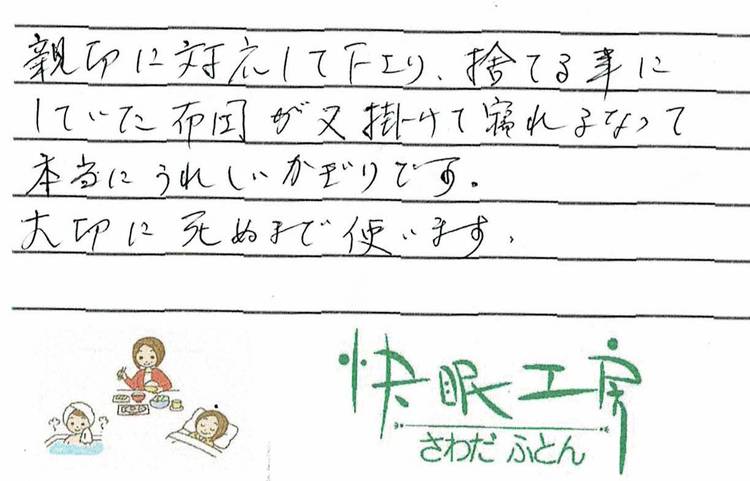 親切に対応して下さり、捨てる事に
していた布団が又掛けて寝れるなって
本当にうれしいかぎりです。
大切に死ぬまで使います。
快眠工房
さわだ ふとん